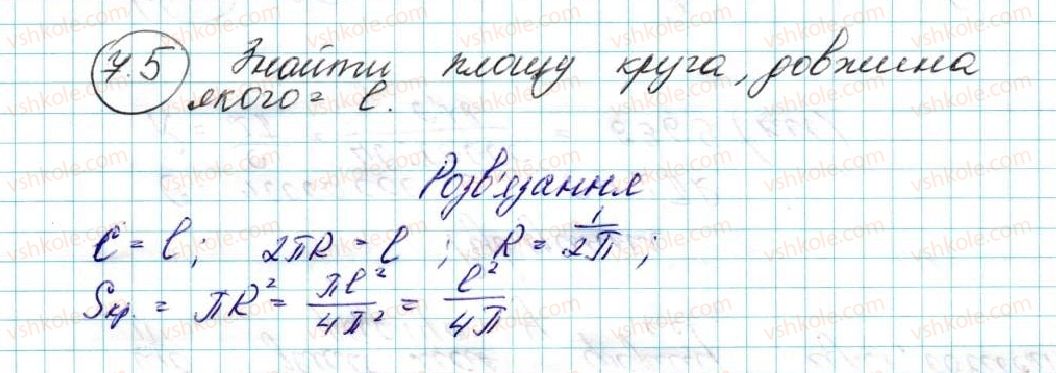 7.5 Знайти площу круга, довжина
якого = l.
Розв'язання
C = l; 2πR = l ; R = 1/2π;
Sкр. = πR² = πl²/4π² = l²/4π